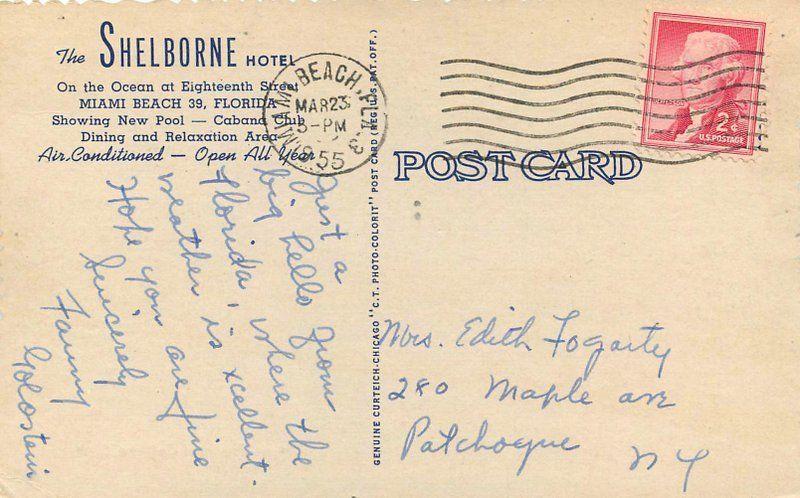 The SHELBORNE HOTEL
On the Ocean at Eighteenth Street
MIAMI BEACH 39, FLORIDA
Showing New Pool — Cabana Club
Dining and Relaxation Area
Air Conditioned — Open All Year
MIAMI BEACH, FLA. 3
MAR 23
5-PM
1955
2¢
U.S. POSTAGE
POST CARD
GENUINE CURTEICH-CHICAGO "C.T. PHOTO-COLORIT" POST CARD (REG. U.S. PAT. OFF.)
Just a
big hello from
Florida, where the
weather is xcellent.
Hope you are fine
Sincerely
Fanny
Goldstein
Mrs. Edith Fogarty
280 Maple ave
Patchogue
NY